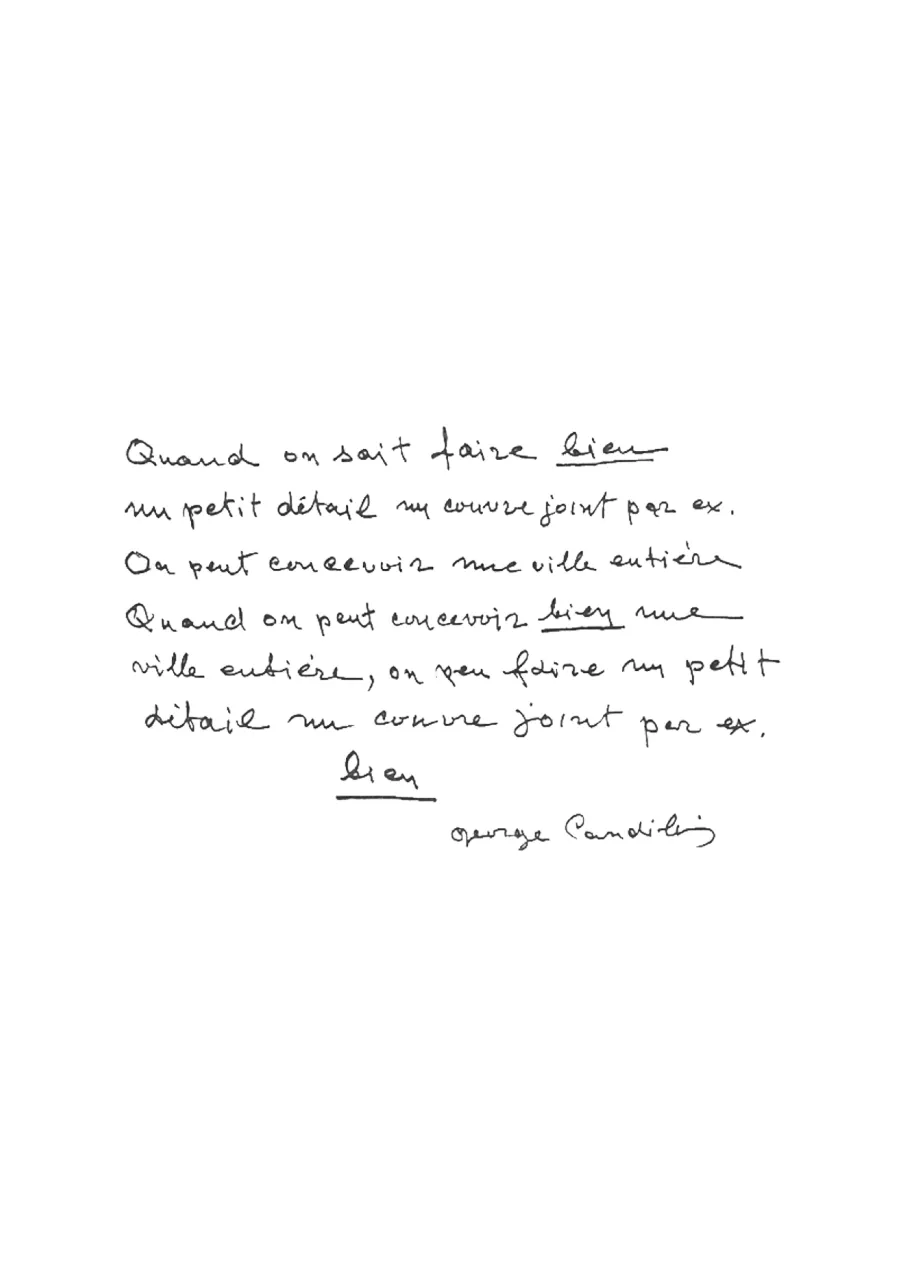 Quand on sait faire bien
un petit détail un couvre joint par ex.
On peut concevoir une ville entière
Quand on peut concevoir bien une
ville entière, on peu faire un petit
détail un couvre joint par ex.
bien
George Candilis